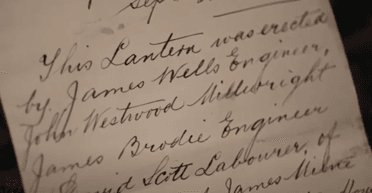 Sep
This Lantern was erected
by James Wells Engineer,
John Westwood Millwright
James Brodie Engineer
David Scott Labourer, of
James Milne